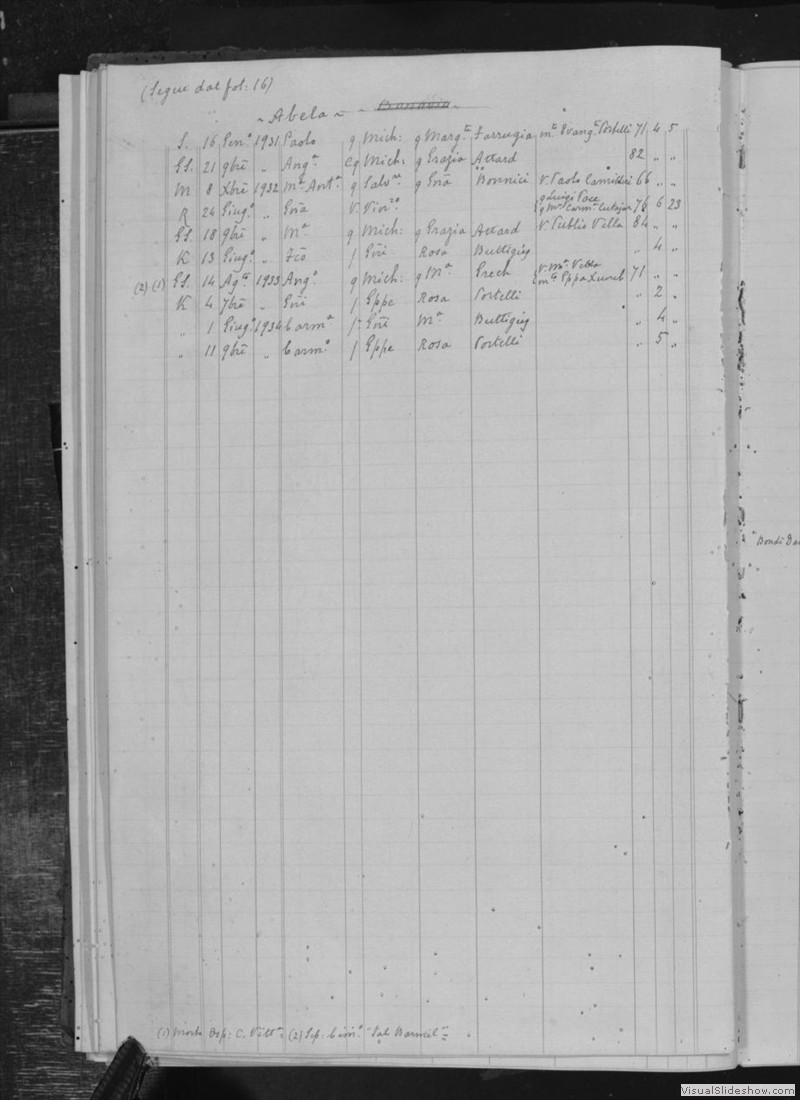 (Segue dal fol: 16)
~ Abela ~
S. 16 Gen.º 1931 Paolo q Mich: q Marg.ta Farrugia m.ta Evang.ta Portelli 71 4 5
GS. 21 9brē „ Ang.º cq Mich: q Grazia Attard 82 „ „
M 8 Xbrē 1932 M.a Ant.a q Salv.re q Gnā Bonnici V. Paolo Camilleri 66 „ „
R 24 Giug.º „ Gnā V. Vinc.zo { q Luigi Pace 76 6 23
{ q M.a Carm.a Cutajar
GS. 18 9brē „ M.a q Mich: q Grazia Attard V. Publio Villa 84 „ „
K 13 Giug.º „ Fcō f Gnī Rosa Buttigieg „ 4 „
(2) (1) GS. 14 Ag.to 1933 Ang.º q Mich: q M.a Grech { V. M.a Vella 71 „ „
{ m.ta Gppa Xuereb
K 4 7brē „ Gnī f Gppe Rosa Portelli „ 2 „
„ 1 Giug.º 1934 Carm.a f Gnī M.a Buttigieg „ 4 „
„ 11 9brē „ Carm.º f Gppe Rosa Portelli „ 5 „
"Bondi Da
(1) Morto Osp: C. Vitt.a (2) Sep: Cim.º
VisualSlideshow.com